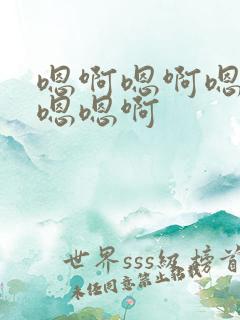 嗯啊嗯啊嗯
嗯嗯啊
世界sss級榜首
未经同意禁止转载